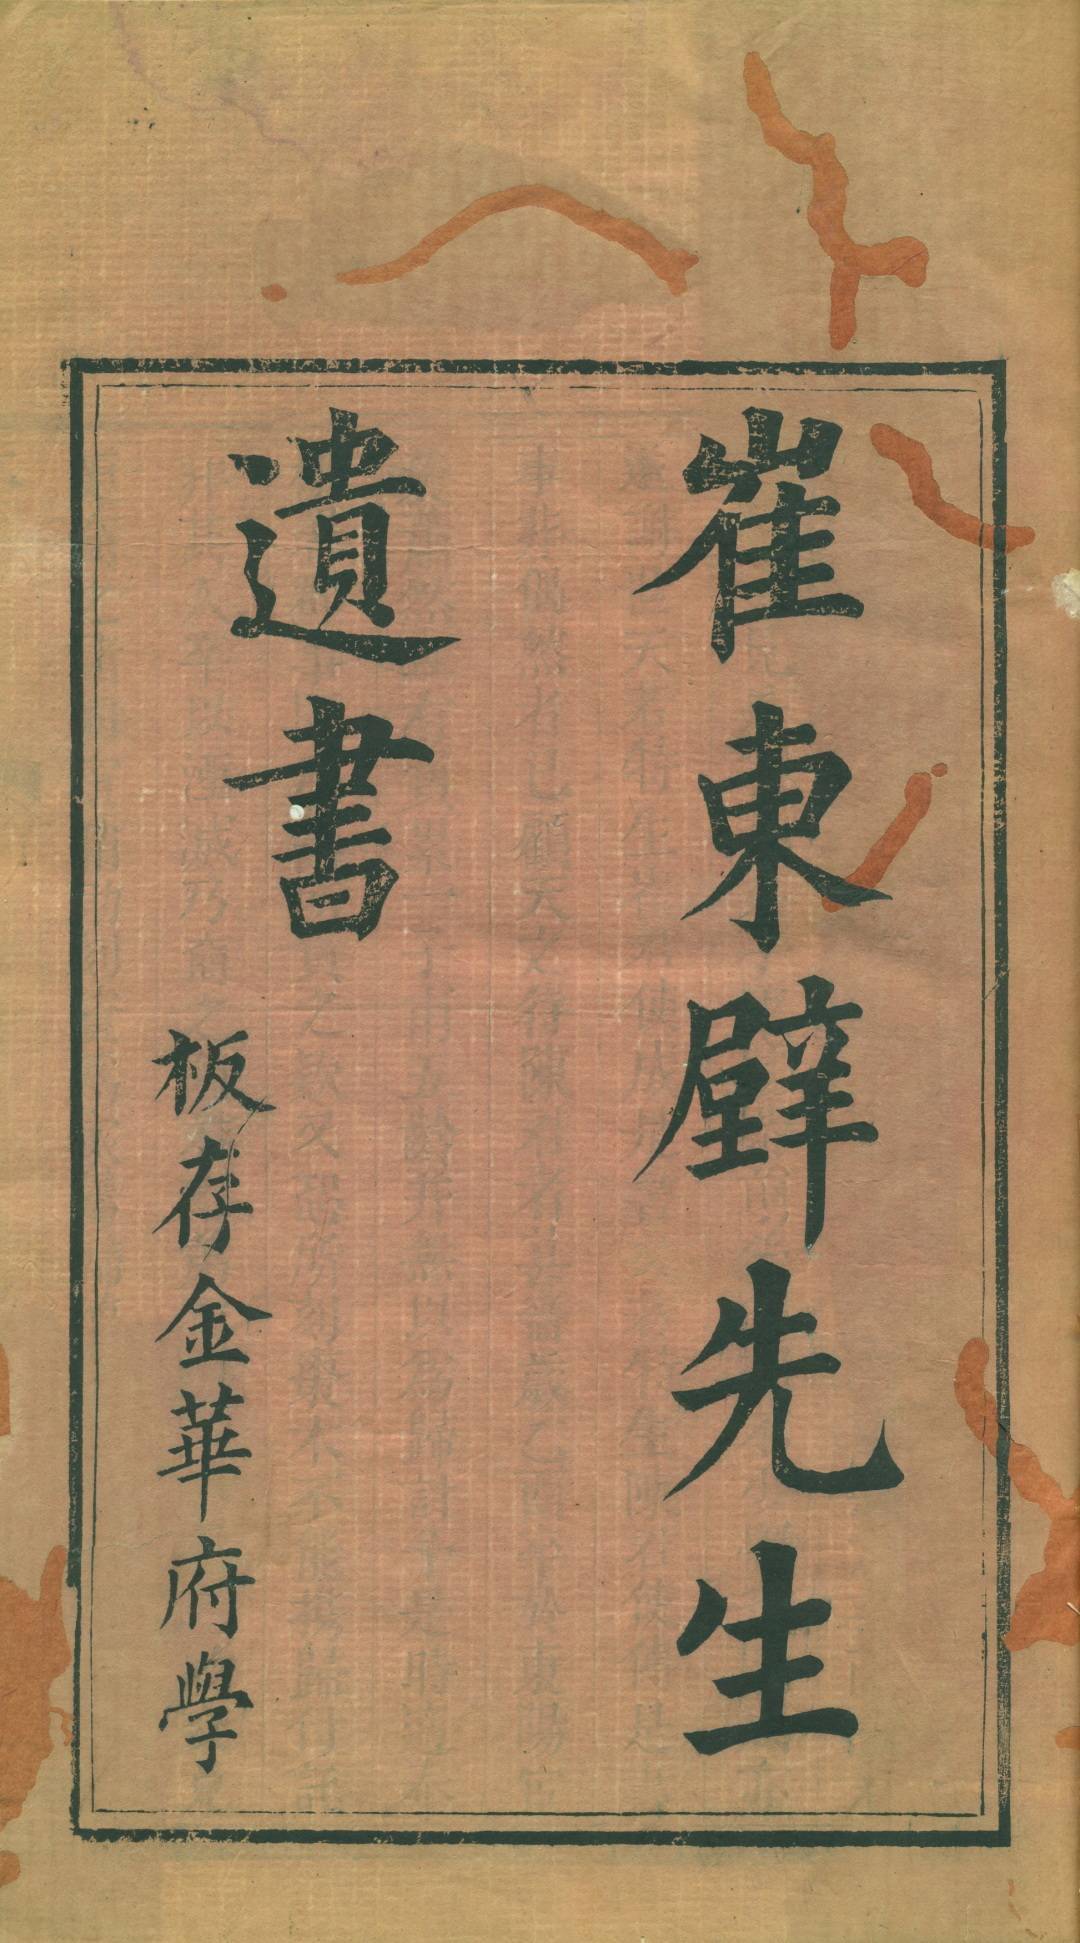 崔東壁先生
遺書
板存金華府學